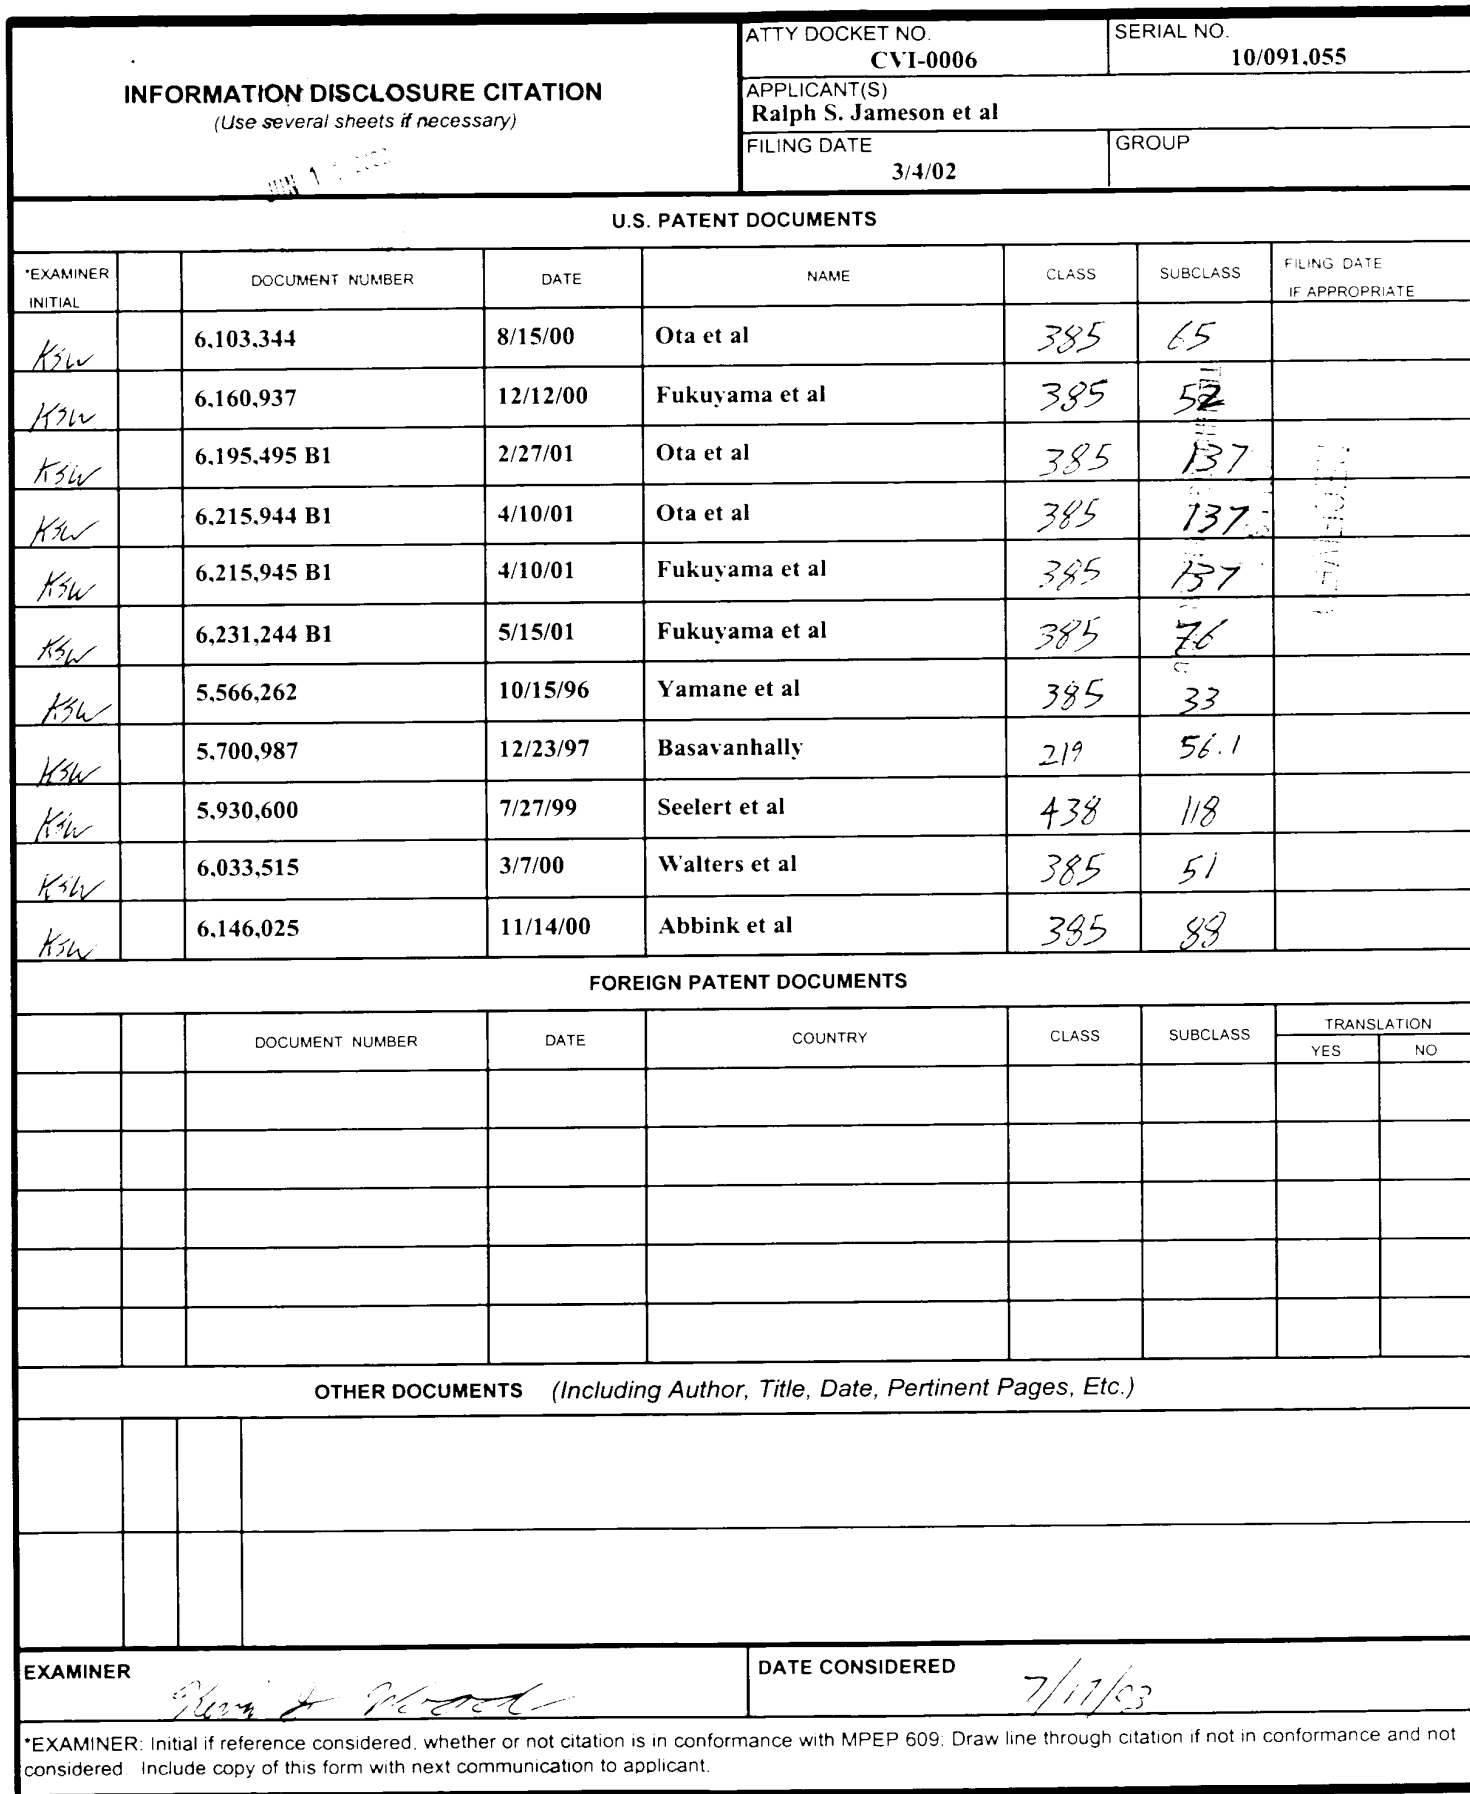 ATTY DOCKET NO.
CVI-0006
SERIAL NO.
10/091,055
INFORMATION DISCLOSURE CITATION
(Use several sheets if necessary)
APPLICANT(S)
Ralph S. Jameson et al
FILING DATE
3/4/02
GROUP
U.S. PATENT DOCUMENTS
*EXAMINER INITIAL DOCUMENT NUMBER DATE NAME CLASS SUBCLASS FILING DATE IF APPROPRIATE
KSW 6,103,344 8/15/00 Ota et al 385 65
KSW 6,160,937 12/12/00 Fukuyama et al 385 52
KSW 6,195,495 B1 2/27/01 Ota et al 385 137
KSW 6,215,944 B1 4/10/01 Ota et al 385 137
KSW 6,215,945 B1 4/10/01 Fukuyama et al 385 137
KSW 6,231,244 B1 5/15/01 Fukuyama et al 385 76
KSW 5,566,262 10/15/96 Yamane et al 385 33
KSW 5,700,987 12/23/97 Basavanhally 219 56.1
KSW 5,930,600 7/27/99 Seelert et al 438 118
KSW 6,033,515 3/7/00 Walters et al 385 51
KSW 6,146,025 11/14/00 Abbink et al 385 88
FOREIGN PATENT DOCUMENTS
DOCUMENT NUMBER DATE COUNTRY CLASS SUBCLASS TRANSLATION
YES NO
OTHER DOCUMENTS (Including Author, Title, Date, Pertinent Pages, Etc.)
EXAMINER Wood
DATE CONSIDERED 7/17/03
*EXAMINER: Initial if reference considered, whether or not citation is in conformance with MPEP 609: Draw line through citation if not in conformance and not
considered. Include copy of this form with next communication to applicant.